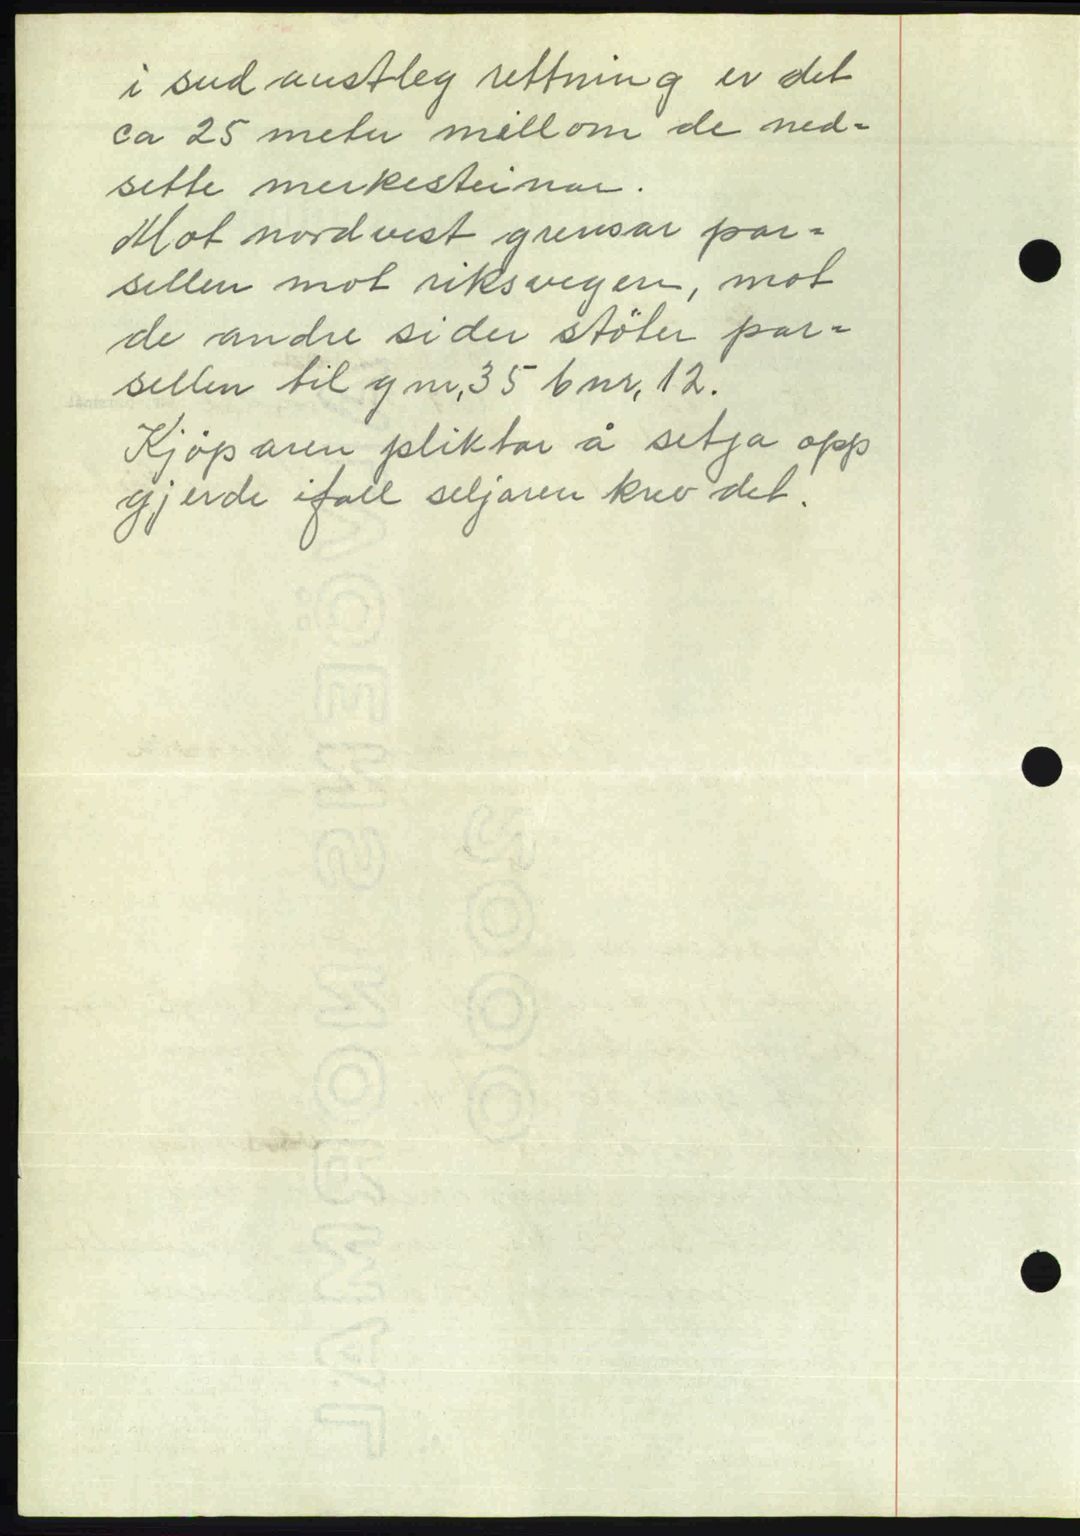 i sud austleg rettning er det
ca 25 meter mellom de ned=
sette merkesteinar.
Mot nordvest grensar par=
sellen mot riksvegen, mot
de andre sider støter par=
sellen til gnr, 35 bnr, 12.
Kjøparen pliktar å setja opp
gjerde ifall seljaren krev det.